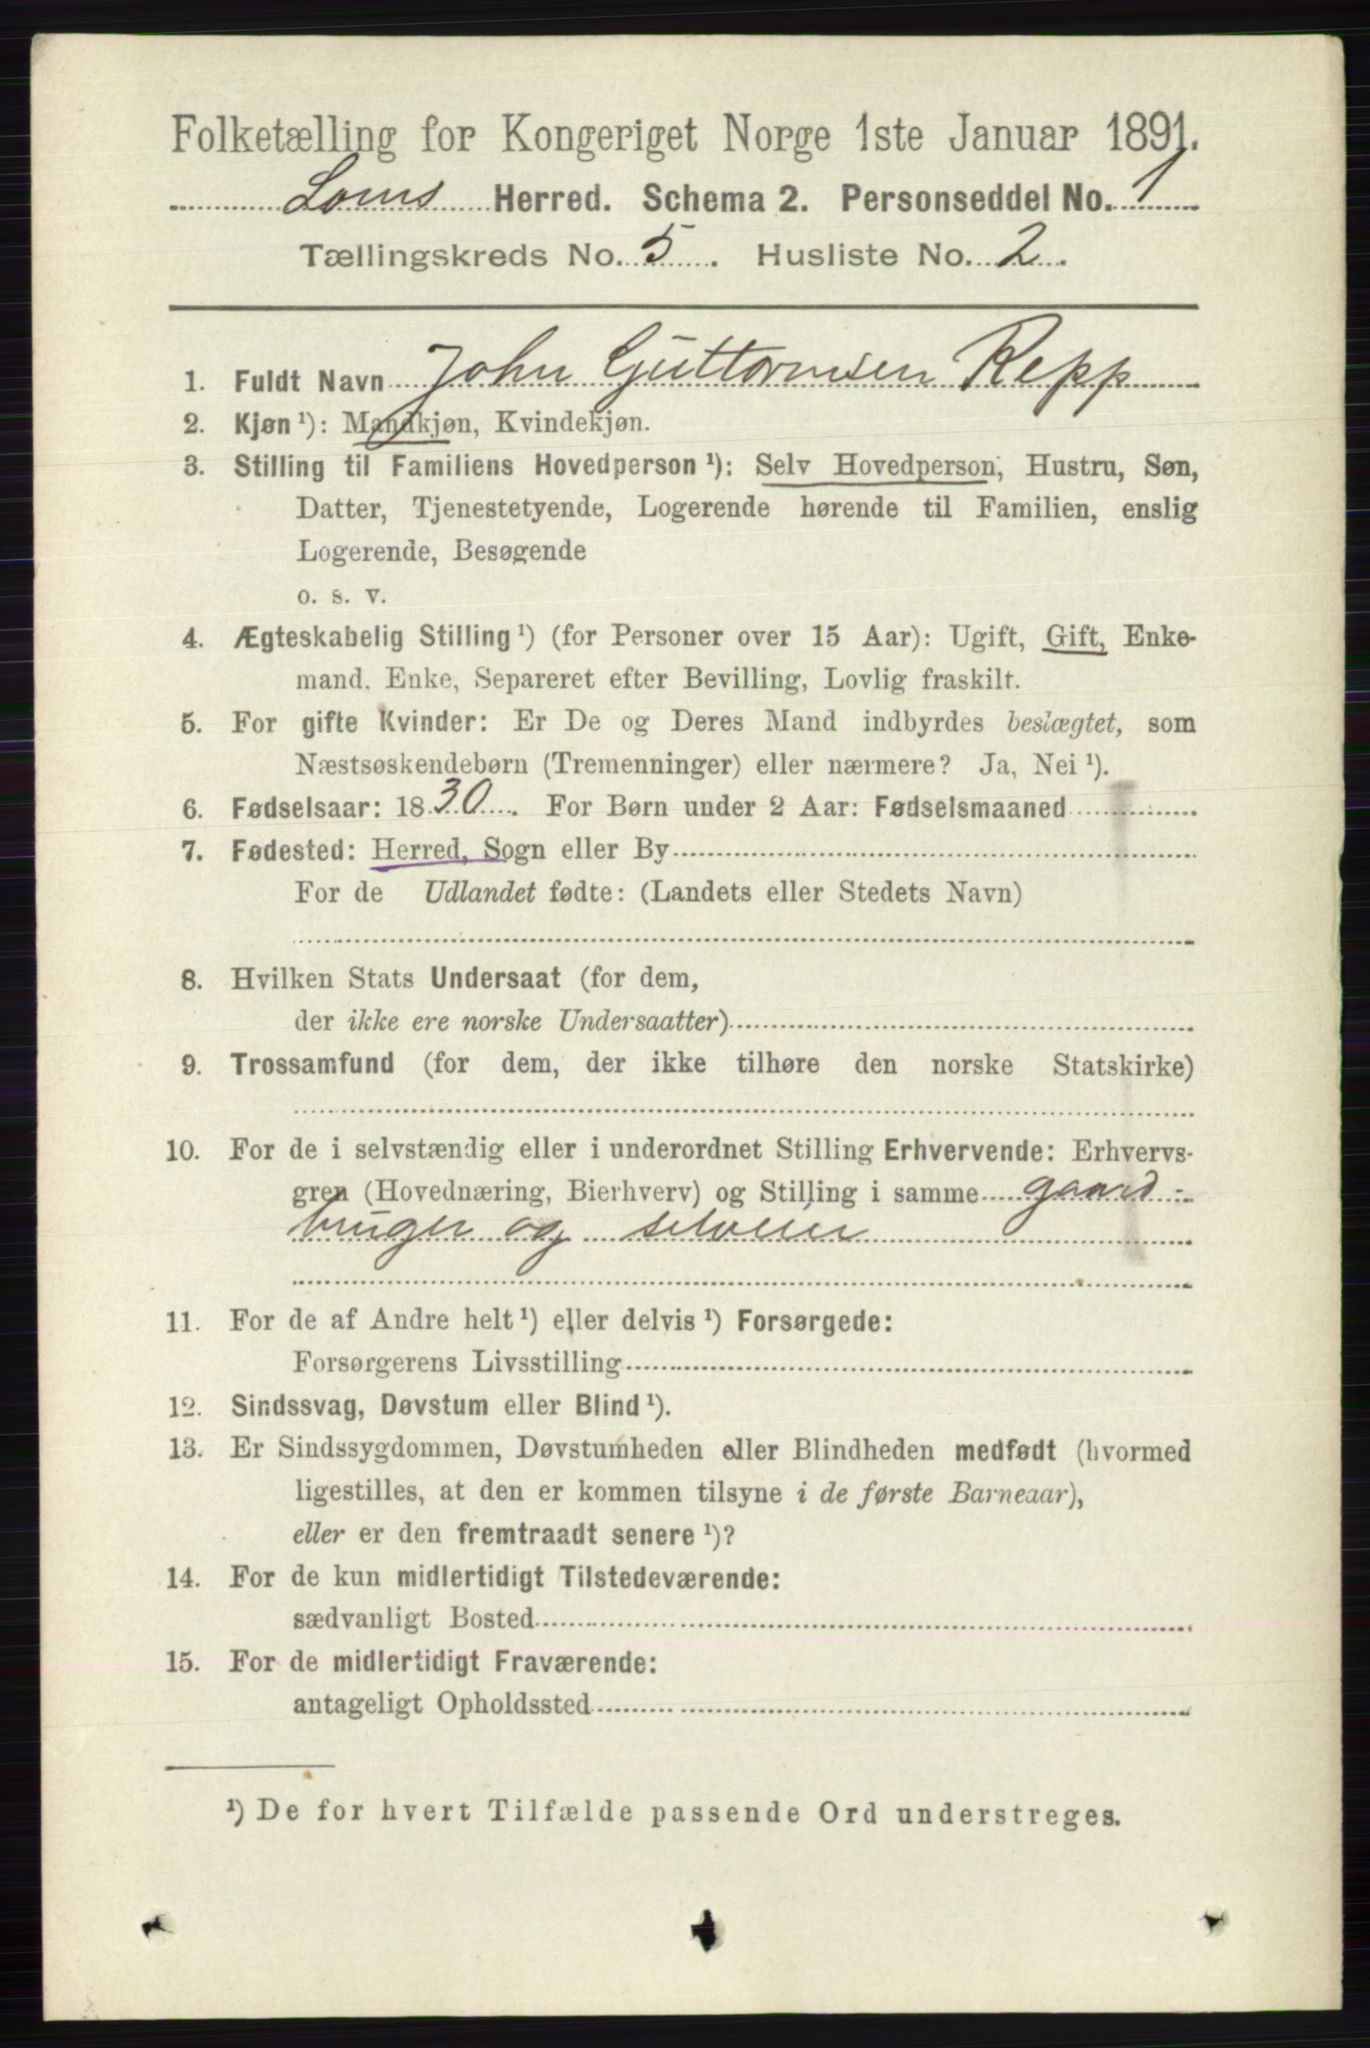 Folketælling for Kongeriget Norge 1ste Januar 1891.
Loms Herred. Schema 2. Personseddel No. 1
Tællingskreds No. 5. Husliste No. 2.
1. Fuldt Navn John Guttormsen Repp
2. Kjøn ¹): Mandkjøn, Kvindekjøn.
3. Stilling til Familiens Hovedperson ¹): Selv Hovedperson, Hustru, Søn,
Datter, Tjenestetyende, Logerende hørende til Familien, enslig
Logerende, Besøgende
o. s. v.
4. Ægteskabelig Stilling ¹) (for Personer over 15 Aar): Ugift, Gift, Enke-
mand. Enke, Separeret efter Bevilling, Lovlig fraskilt.
5. For gifte Kvinder: Er De og Deres Mand indbyrdes beslægtet, som
Næstsøskendebørn (Tremenninger) eller nærmere? Ja, Nei ¹).
6. Fødselsaar: 1830. For Børn under 2 Aar: Fødselsmaaned
7. Fødested: Herred, Sogn eller By
For de Udlandet fødte: (Landets eller Stedets Navn)
8. Hvilken Stats Undersaat (for dem,
der ikke ere norske Undersaatter)
9. Trossamfund (for dem, der ikke tilhøre den norske Statskirke)
10. For de i selvstændig eller i underordnet Stilling Erhvervende: Erhvervs-
gren (Hovednæring, Bierhverv) og Stilling i samme gaard-
bruger og selveier
11. For de af Andre helt ¹) eller delvis ¹) Forsørgede:
Forsørgerens Livsstilling
12. Sindssvag, Døvstum eller Blind ¹).
13. Er Sindssygdommen, Døvstumheden eller Blindheden medfødt (hvormed
ligestilles, at den er kommen tilsyne i de første Barneaar),
eller er den fremtraadt senere ¹)?
14. For de kun midlertidigt Tilstedeværende:
sædvanligt Bosted
15. For de midlertidigt Fraværende:
antageligt Opholdssted
¹) De for hvert Tilfælde passende Ord understreges.